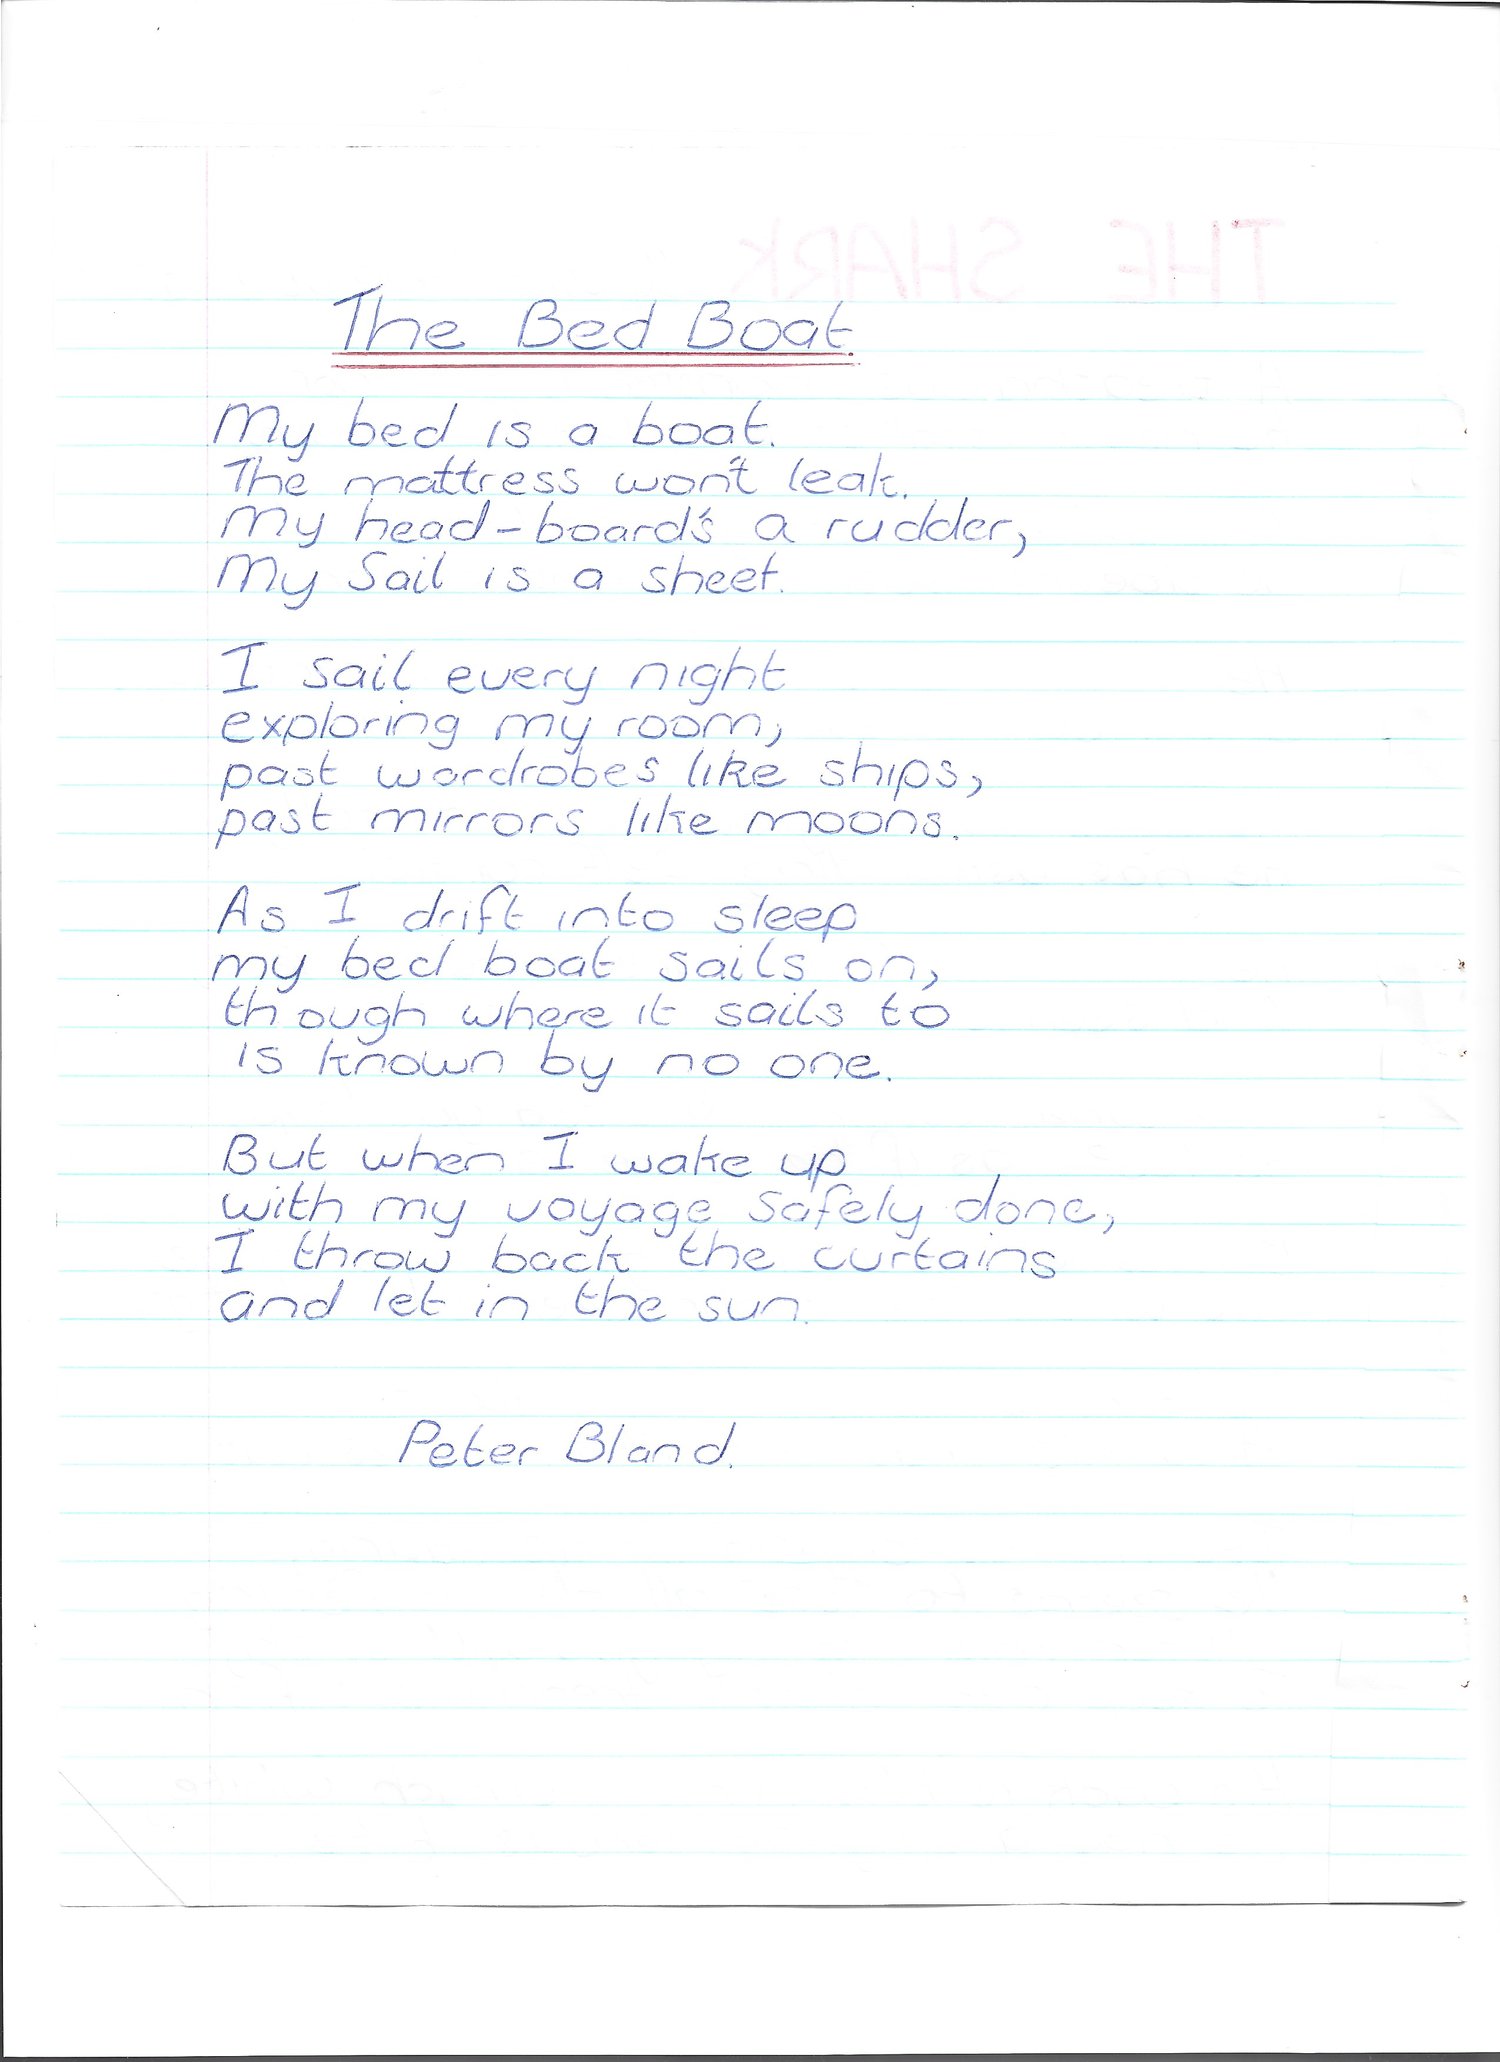 THE SHARK
The Bed Boat
My bed is a boat.
The mattress won't leak.
My head-board's a rudder,
My Sail is a sheet.
I sail every night
exploring my room,
past wardrobes like ships,
past mirrors like moons.
As I drift into sleep
my bed boat sails on,
though where it sails to
is known by no one.
But when I wake up
with my voyage safely done,
I throw back the curtains
and let in the sun.
Peter Bland.